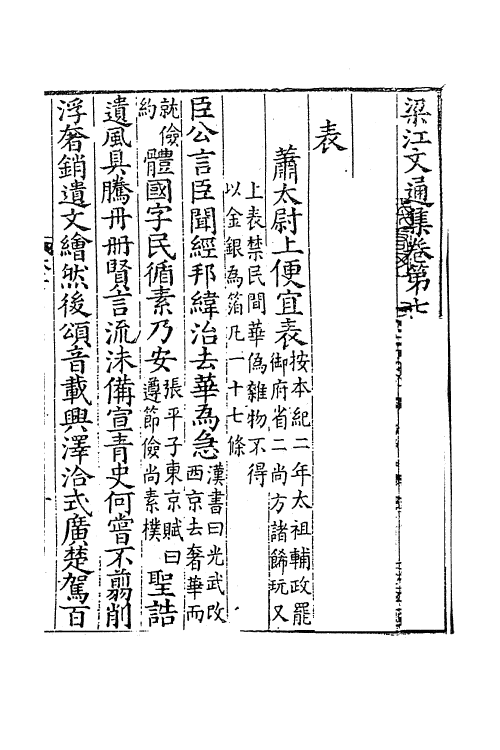 梁江文通集卷第七
表
蕭太尉上便宜表按本紀二年太祖輔政罷
御府省二尚方諸飾玩又
上表禁民間華偽雜物不得
以金銀為箔凡一十七條
臣公言臣聞經邦緯治去華為急漢書曰光武改
西京去奢華而
就儉
約體國字民循素乃安張平子東京賦曰
遵節儉尚素樸聖誥
遺風具騰冊冊賢言流沬備宣青史何嘗不翦削
浮奢銷遺文繪然後頌音載興澤洽式廣楚駕百